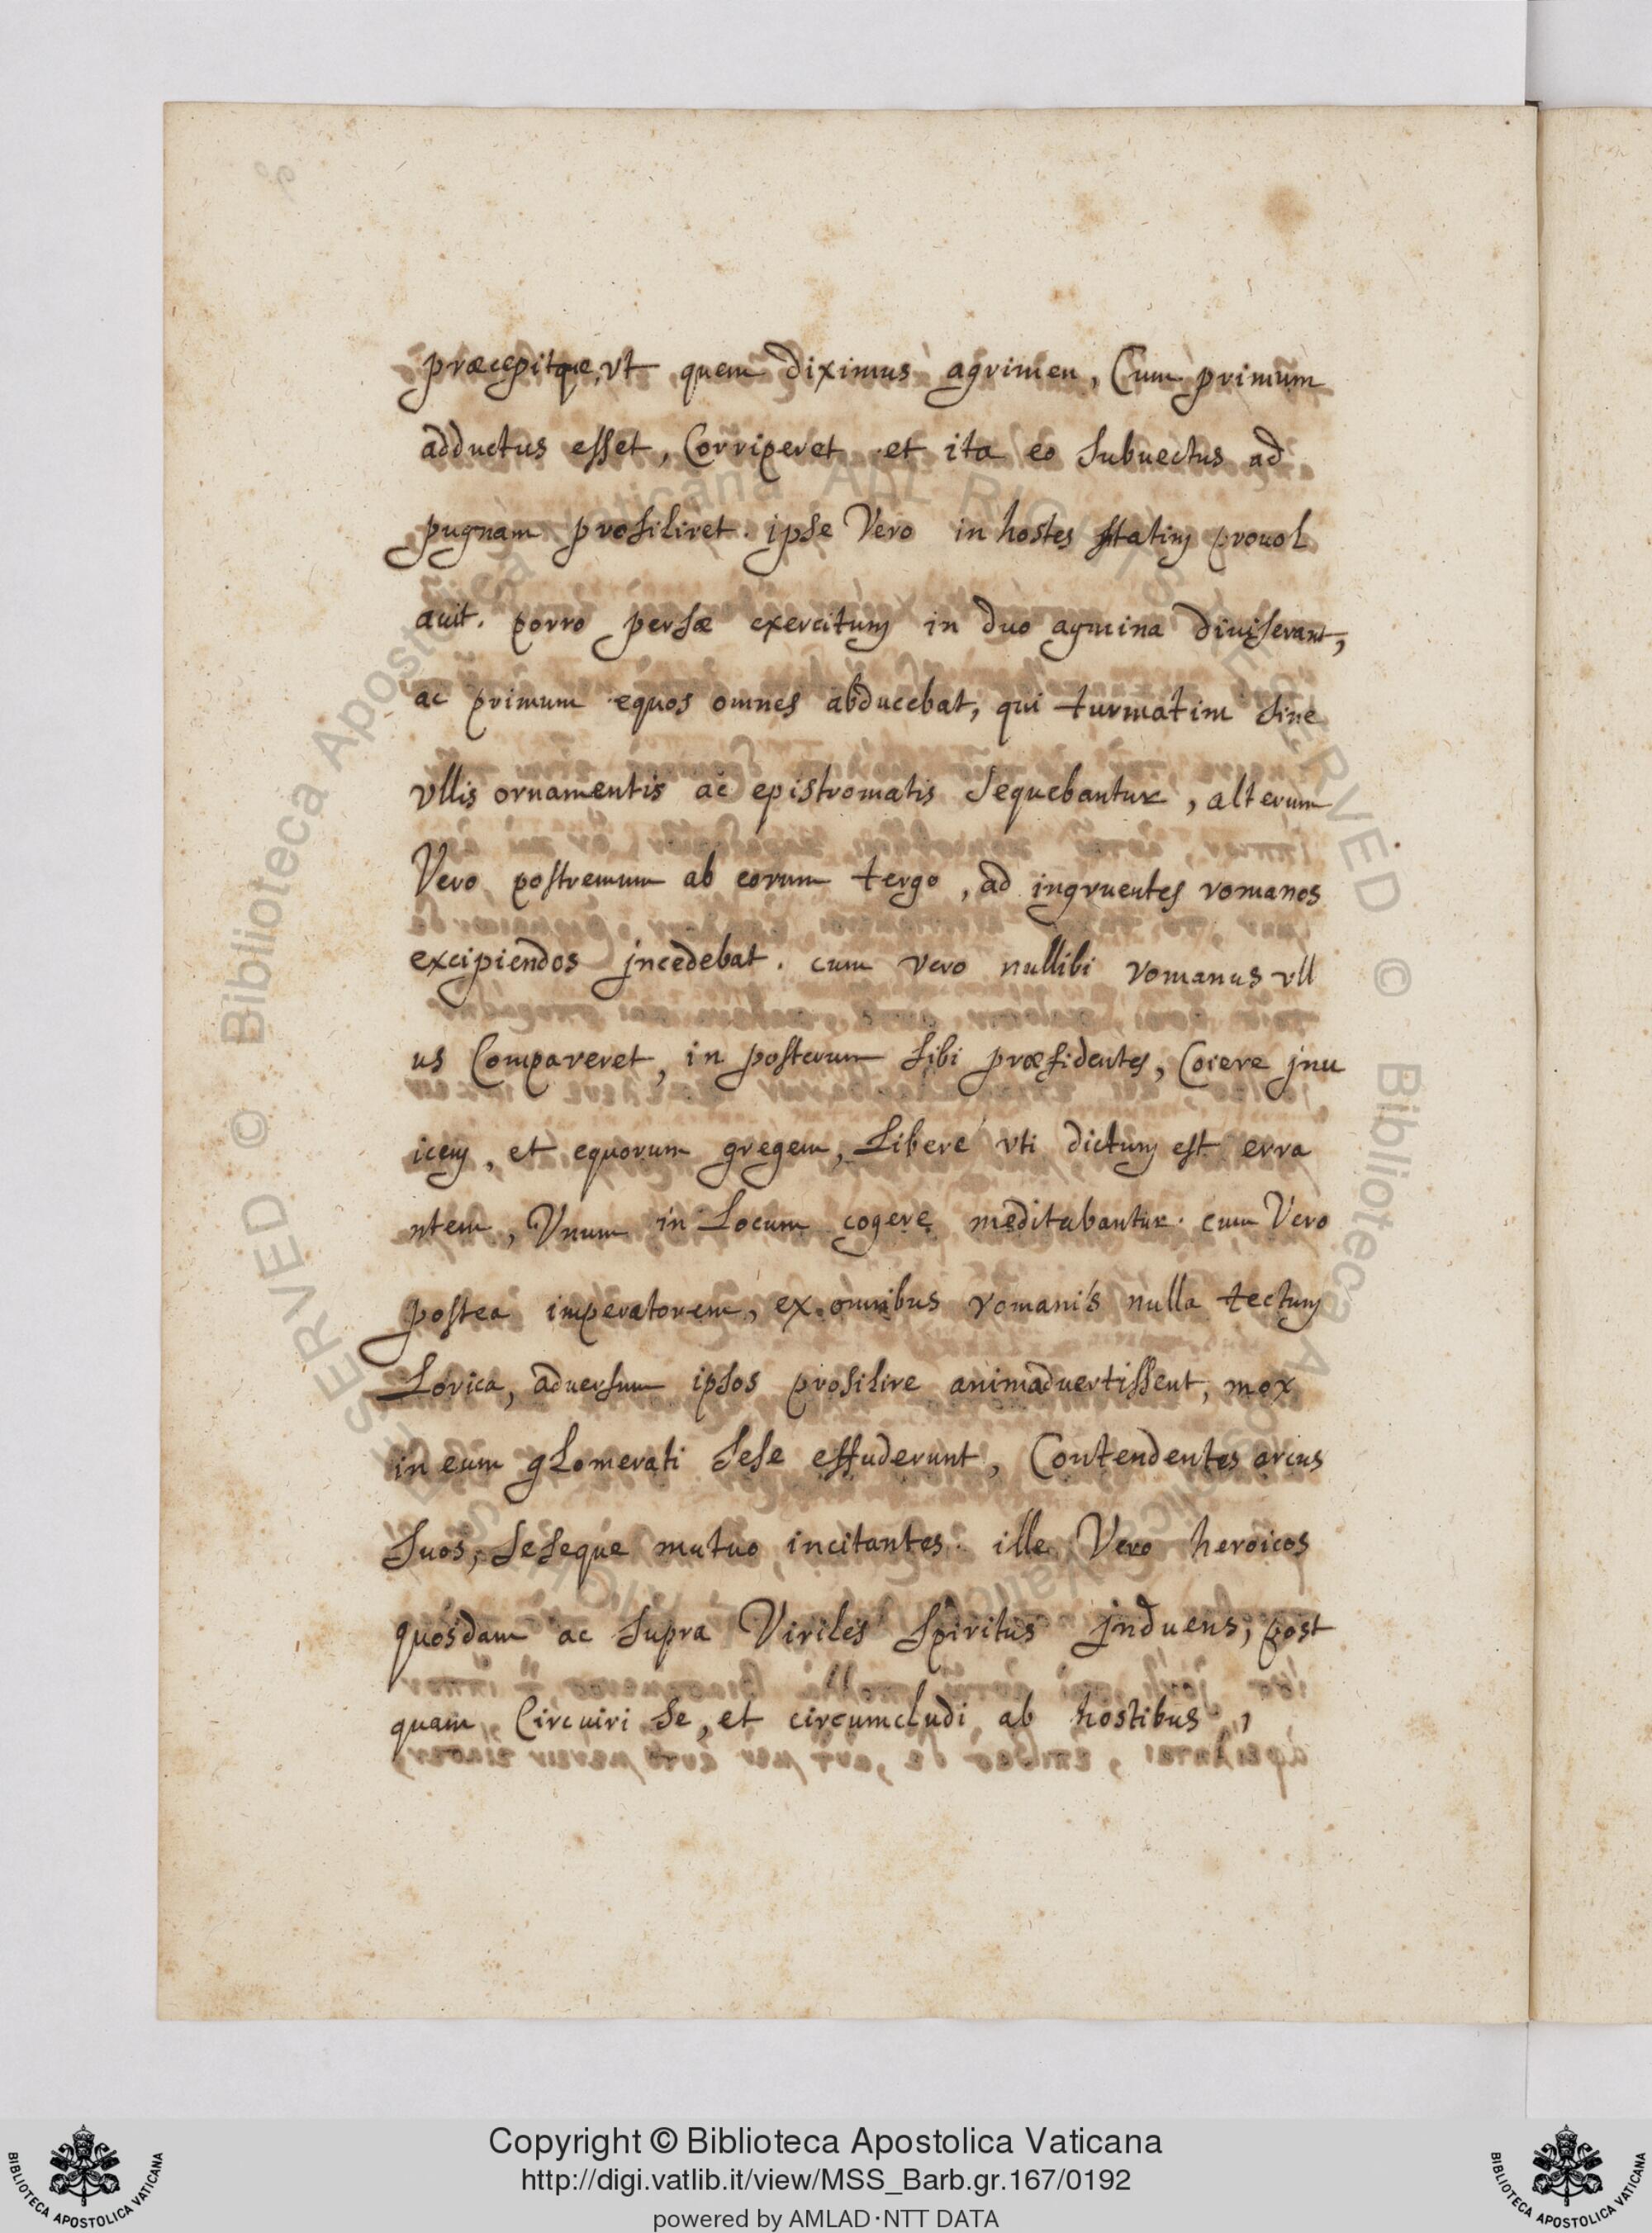 præcepitque, vt quem diximus agrimen, Cum primum
adductus esset, Corriperet et ita eo subuectus ad
pugnam prosiliret. ipse Vero in hostes statim prouol
auit. porro persæ exercitum in duo agmina diuiserant,
ac primum equos omnes abducebat, qui turmatim sine
vllis ornamentis ac epistromatis sequebantur, alterum
Vero postremum ab eorum tergo, ad ingruentes romanos
excipiendos jncedebat. cum vero nullibi romanus vll
us Compareret, in posterum sibi præfidentes, Coiere jnu
icem, et equorum gregem, Libere vti dictum est erra
ntem, Vnum in Locum cogere meditabantur. cum Vero
postea imperatorem, ex omnibus romanis nulla tectum
Lorica, aduersum ipsos prosilire animaduertissent, mox
in eum gLomerati sese effuderunt, Contendentes arcus
suos, seseque mutuo incitantes. ille Vero heroicos
quosdam ac supra Viriles spiritus jnduens, post
quam Circuiri se, et circumcludi ab hostibus,
Copyright © Biblioteca Apostolica Vaticana
http://digi.vatlib.it/view/MSS_Barb.gr.167/0192
powered by AMLAD·NTT DATA